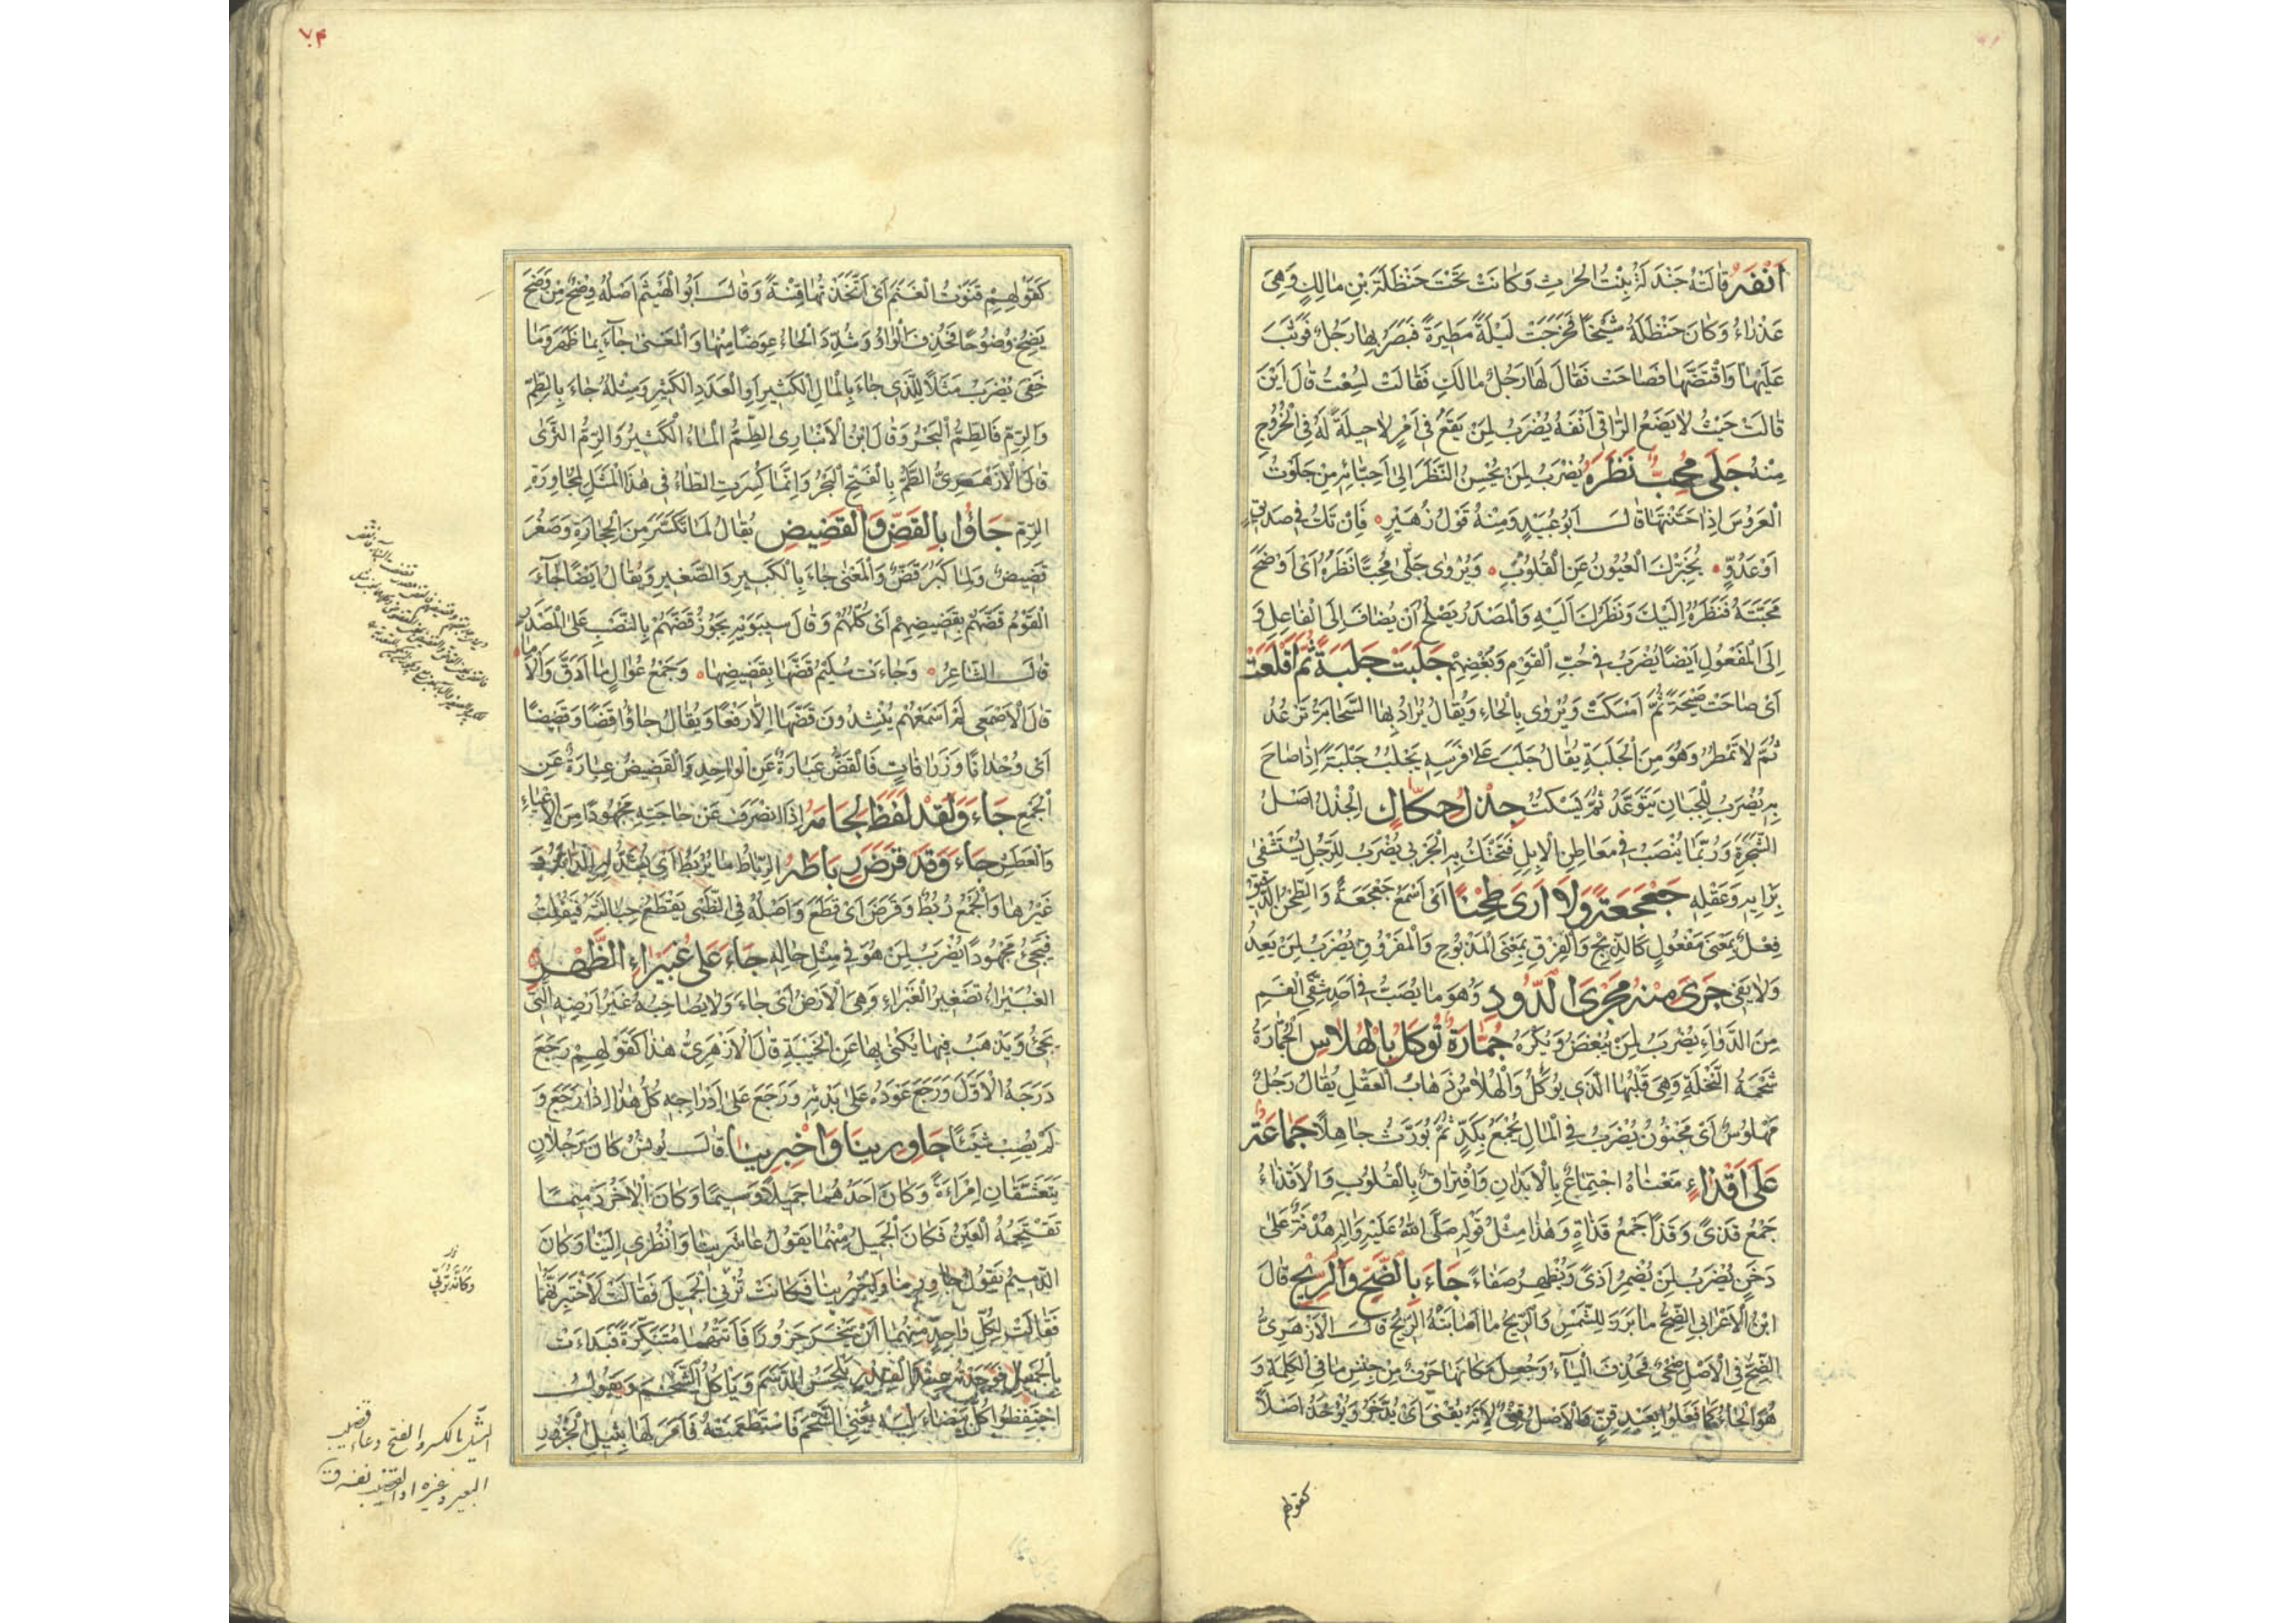 أَنْفَهُ قَالَتْهُ جَنْدَلَةُ بِنْتُ الْحَارِثِ وَكَانَتْ تَحْتَ حَنْظَلَةَ بْنِ مَالِكٍ وَهِيَ
عَذْرَاءُ وَكَانَ حَنْظَلَةُ شَيْخًا فَخَرَجَتْ لَيْلَةً مَطِيرَةً فَبَصُرَ بِهَا رَجُلٌ فَوَثَبَ
عَلَيْهَا وَاقْتَضَّهَا فَصَاحَتْ فَقَالَ لَهَا رَجُلٌ مَالَكِ فَقَالَتْ لُسِعْتُ قَالَ أَيْنَ
قَالَتْ حَيْثُ لَا يَضَعُ الرَّاقِي أَنْفَهُ يُضْرَبُ لِمَنْ يَقَعُ فِي أَمْرٍ لَا حِيلَةَ لَهُ فِي الْخُرُوجِ
مِنْهُ جَلَى مُحِبٌّ نَظَرَهُ يُضْرَبُ لِمَنْ يُحْسِنُ النَّظَرَ إِلَى أَحِبَّائِهِ مِنْ جَلَوْتُ
الْعَرُوسَ إِذَا حَسَّنْتَهَا قَالَ أَبُو عُبَيْدٍ وَمِنْهُ قَوْلُ زُهَيْرٍ فَإِنْ تَكُ فِي صَدِيقٍ
أَوْ عَدُوٍّ يُخْبِرْكَ الْعُيُونُ عَنِ الْقُلُوبِ وَيُرْوَى جَلَى مُحِبًّا نَظَرُهُ أَيْ أَوْضَحَ
مَحَبَّتَهُ نَظَرُهُ إِلَيْكَ وَنَظَرُكَ إِلَيْهِ وَالْمَصْدَرُ يَصْلُحُ أَنْ يُضَافَ إِلَى الْفَاعِلِ وَ
إِلَى الْمَفْعُولِ أَيْضًا يُضْرَبُ فِي حُبِّ الْقَوْمِ وَبُغْضِهِمْ جَلَبَتْ جَلَبَةً ثُمَّ أَقْلَعَتْ
أَيْ صَاحَتْ صَيْحَةً ثُمَّ أَمْسَكَتْ وَيُرْوَى بِالْحَاءِ وَيُقَالُ يُرَادُ بِهَا السَّحَابَةُ تَرْعُدُ
ثُمَّ لَا تَمْطُرُ وَهُوَ مِنَ الْجَلَبَةِ يُقَالُ جَلَبَ عَلَى فَرَسِهِ يَجْلِبُ جَلَبَةً إِذَا صَاحَ
بِهِ يُضْرَبُ لِلْجَبَانِ يَتَوَعَّدُ ثُمَّ يَسْكُتُ جِذْلُ حِكَاكٍ الْجِذْلُ أَصْلُ
الشَّجَرَةِ وَرُبَّمَا يُنْصَبُ فِي مَعَاطِنِ الْإِبِلِ فَتَحْتَكُّ بِهِ الْجَرْبَى يُضْرَبُ لِلرَّجُلِ يُسْتَشْفَى
بِرَأْيِهِ وَعَقْلِهِ جَعْجَعَةً وَلَا أَرَى طِحْنًا أَيْ أَسْمَعُ جَعْجَعَةً وَالطِّحْنُ الدَّقِيقُ
فِعْلٌ بِمَعْنَى مَفْعُولٍ كَالذِّبْحِ وَالْفِرْقِ بِمَعْنَى الْمَذْبُوحِ وَالْمَفْرُوقِ يُضْرَبُ لِمَنْ يَعِدُ
وَلَا يَفِي جَرَى مِنْهُ مَجْرَى اللَّدُودِ وَهُوَ مَا يُصَبُّ فِي أَحَدِ شِقَّيِ الْفَمِ
مِنَ الدَّوَاءِ يُضْرَبُ لِمَنْ يُبْغَضُ وَيُكْرَهُ جُمَّارَةٌ تُؤْكَلُ بِالْهُلَاسِ الْجُمَّارَةُ
شَحْمَةُ النَّخْلَةِ وَهِيَ قَلْبُهَا الَّذِي يُؤْكَلُ وَالْهُلَاسُ ذَهَابُ الْعَقْلِ يُقَالُ رَجُلٌ
مَهْلُوسٌ أَيْ مَجْنُونٌ يُضْرَبُ فِي الْمَالِ يُجْمَعُ بِكَدٍّ ثُمَّ يُوَرَّثُ جَاهِلًا جَمَاعَةٌ
عَلَى أَقْذَاءٍ مَعْنَاهُ اجْتِمَاعٌ بِالْأَبْدَانِ وَافْتِرَاقٌ بِالْقُلُوبِ وَالْأَقْذَاءُ
جَمْعُ قَذًى وَقَذًا جَمْعُ قَذَاةٍ وَهَذَا مِثْلُ قَوْلِهِ صَلَّى اللهُ عَلَيْهِ وَآلِهِ هُدْنَةٌ عَلَى
دَخَنٍ يُضْرَبُ لِمَنْ يُضْمِرُ أَذًى وَيُظْهِرُ صَفَاءً جَاءَ بِالضِّحِّ وَالرِّيحِ قَالَ
ابْنُ الْأَعْرَابِيِّ الضِّحُّ مَا بَرَزَ لِلشَّمْسِ وَالرِّيحُ مَا أَصَابَتْهُ الرِّيحُ قَالَ الْأَزْهَرِيُّ
الضِّحُّ فِي الْأَصْلِ ضِحْيٌ فَحُذِفَ الْيَاءُ وَجُعِلَ مَكَانَهَا حَرْفٌ مِنْ جِنْسِ مَا فِي الْكَلِمَةِ وَ
هُوَ الْحَاءُ كَمَا فَعَلُوا بِعَبْدٍ قِنٍّ فَالْأَصْلُ قِنْيٌ لِأَنَّهُ يُقْنَى أَيْ يُدَّخَرُ وَيُؤْخَذُ أَصْلًا
كقولهم
٧٤
كَقَوْلِهِمْ قَنَوْتُ الْغَنَمَ أَيْ اتَّخَذْتُهَا قِنْيَةً وَقَالَ أَبُو الْهَيْثَمِ أَصْلُهُ وِضْحٌ مِنْ وَضَحَ
يَضِحُ وُضُوحًا فَحُذِفَ الْوَاوُ وَشُدِّدَ الْحَاءُ عِوَضًا مِنْهَا وَالْمَعْنَى جَاءَ بِمَا ظَهَرَ وَمَا
خَفِيَ يُضْرَبُ مَثَلًا لِلَّذِي جَاءَ بِالْمَالِ الْكَثِيرِ أَوِ الْعَدَدِ الْكَثِيرِ وَمِثْلُهُ جَاءَ بِالطِّمِّ
وَالرِّمِّ فَالطِّمُّ الْبَحْرُ وَقَالَ ابْنُ الْأَنْبَارِيِّ الطِّمُّ الْمَاءُ الْكَثِيرُ وَالرِّمُّ الثَّرَى
قَالَ الْأَزْهَرِيُّ الطَّمُّ بِالْفَتْحِ الْبَحْرُ وَإِنَّمَا كُسِرَتِ الطَّاءُ فِي هَذَا الْمَثَلِ لِمُجَاوَرَةِ
الرِّمِّ جَاؤُا بِالْقَضِّ وَالْقَضِيضِ يُقَالُ لِمَا تَكَسَّرَ مِنَ الْحِجَارَةِ وَصَغُرَ
قَضِيضٌ وَلِمَا كَبُرَ قَضٌّ وَالْمَعْنَى جَاءَ بِالْكَبِيرِ وَالصَّغِيرِ وَيُقَالُ أَيْضًا جَاءَ
الْقَوْمُ قَضُّهُمْ بِقَضِيضِهِمْ أَيْ كُلُّهُمْ وَقَالَ سِيبَوَيْهِ يَجُوزُ قَضَّهُمْ بِالنَّصْبِ عَلَى الْمَصْدَرِ
قَالَ الشَّاعِرُ وَجَاءَتْ سُلَيْمٌ قَضُّهَا بِقَضِيضِهَا وَجَمْعُ عُوَالٍ مَا أَدَقَّ وَأَلْأَمَا
قَالَ الْأَصْمَعِي لَمْ أَسْمَعْهُمْ يُنْشِدُونَ قَضُّهَا إِلَّا رَفْعًا وَيُقَالُ جَاؤُا قَضًّا وَقَضِيضًا
أَيْ وُحْدَانًا وَزَرَافَاتٍ فَالْقَضُّ عِبَارَةٌ عَنِ الْوَاحِدِ وَالْقَضِيضُ عِبَارَةٌ عَنِ
الْجَمْعِ جَاءَ وَقَدْ لَفَظَ لِجَامَهُ إِذَا انْصَرَفَ عَنْ حَاجَتِهِ مَجْهُودًا مِنَ الْإِعْيَاءِ
وَالْعَطَشِ جَاءَ وَقَدْ قَرَضَ رِبَاطَهُ الرِّبَاطُ مَا يُرْبَطُ أَيْ يُشَدُّ بِهِ الدَّابَّةُ وَ
غَيْرُهَا وَالْجَمْعُ رُبُطٌ وَقَرَضَ أَيْ قَطَعَ وَأَصْلُهُ فِي الظَّبْيِ يَقْطَعُ حِبَالَتَهُ فَيَفْلِتُ
فَيَجِيءُ مَجْهُودًا يُضْرَبُ لِمَنْ هُوَ فِي مِثْلِ حَالِهِ جَاءَ عَلَى غُبَيْرَاءِ الظَّهْرِ
الْغُبَيْرَاءُ تَصْغِيرُ الْغَبْرَاءِ وَهِيَ الْأَرْضُ أَيْ جَاءَ وَلَا يُصَاحِبُهُ غَيْرُ أَرْضِهِ الَّتِي
يَجِيءُ وَيَذْهَبُ فِيهَا يُكْنَى بِهَا عَنِ الْخَيْبَةِ قَالَ الْأَزْهَرِيُّ هَذَا كَقَوْلِهِمْ رَجَعَ
دَرَجَهُ الْأَوَّلَ وَرَجَعَ عَوْدَهُ عَلَى بَدْئِهِ وَرَجَعَ عَلَى أَدْرَاجِهِ كُلُّ هَذَا إِذَا رَجَعَ وَ
لَمْ يُصِبْ شَيْئًا جَاوِرِينَا وَاخْبِرِينَا قَالَ يُونُسُ كَانَ رَجُلَانِ
يَتَعَشَّقَانِ امْرَأَةً وَكَانَ أَحَدُهُمَا جَمِيلًا وَسِيمًا وَكَانَ الْآخَرُ دَمِيمًا
تَقْتَحِمُهُ الْعَيْنُ فَكَانَ الْجَمِيلُ مِنْهُمَا يَقُولُ عَاشِرِينَا وَانْظُرِي إِلَيْنَا وَكَانَ
الدَّمِيمُ يَقُولُ جَاوِرِينَا وَاخْبُرِينَا فَكَانَتْ تُدْنِي الْجَمِيلَ فَقَالَتْ لَأَخْتَبِرَنَّهُمَا
فَقَالَتْ لِكُلِّ وَاحِدٍ مِنْهُمَا أَنْ يَنْحَرَ جَزُورًا فَأَتَتْهُمَا مُتَنَكِّرَةً فَبَدَأَتْ
بِالْجَمِيلِ فَوَجَدَتْهُ عِنْدَ الْقِدْرِ يَلْحَسُ الدَّسَمَ وَيَأْكُلُ الشَّحْمَ وَيَقُولُ
احْتَفِظُوا كُلَّ بَيْضَاءَ لِيَهْ يَعْنِي الشَّحْمَ فَاسْتَطْعَمَتْهُ فَأَمَرَ لَهَا بِثِيلِ الْجَزُورِ
الثيل بالكسر والفتح وعاء قضيب
البعير وغيره او القضيب نفسه ق